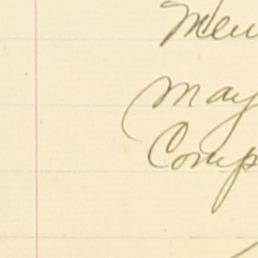 Mew
May
Comp